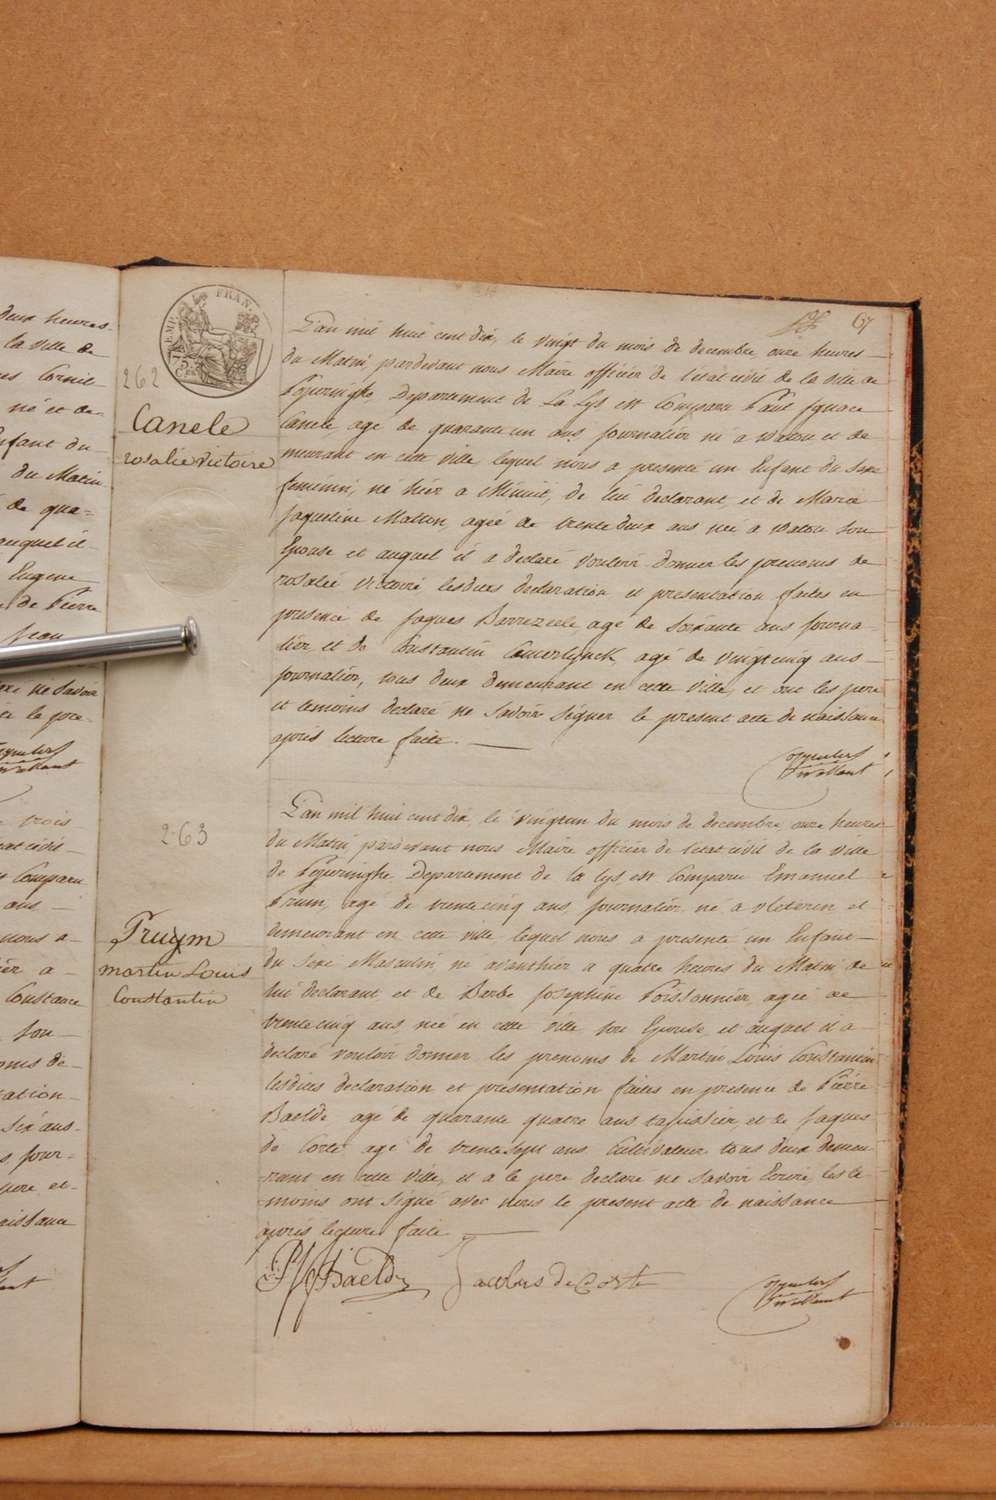 deux heures
la ville de
né et de-
Enfant du
du Matin
de qua=
auquel il
Eugene
de Pierre
Jean
ne savoir
le pre-
trois
Comparu
ans
nous a
Constance
son
ation
six ans
jour=
pere et
naissance
67
262
Canele
rosalie Victoire
L'an mil huit cent dix, le vingt du mois de decembre onze heures
du Matin pardevant nous Maire officier de l'etat civil de la ville de
Poperinghe, Departement de La Lys est Comparu Paul Ignace
Canele, agé de quarante un ans journalier né a Watou et de
meurant en cette ville lequel nous a presenté un Enfant du sexe
femenin, né hier a Minuit, de lui declarant, et de Marie
Jaqueline Matton, agée de trente deux ans née a Watou son
Epouse et auquel il a declaré vouloir donner les prenoms de
rosalie Victoire lesdites declaration et presentation faites en
presence de Jaques Barrezeele, agé de soixante ans journa-
lier, et de Constantin Camerlynck, agé de vingtcinq ans
journalier, tous deux demeurant en cette ville, et ont les pere
et temoins declaré ne savoir signer le present acte de naissance
après lecture faite.
263
Pruym
martin Louis
Constantin
L'an mil huit cent dix, le vingtun du mois de decembre, onze heures
du Matin, pardevant nous Maire officier de l'etat civil de la ville
de Poperinghe Departement de la Lys, est Comparu Emanuel
Pruim, agé de trente cinq ans, journalier, né a Vleteren et
demeurant en cette ville lequel nous a presenté un Enfant
du sexe Masculin, né avanthier a quatre heures du Matin de
lui declarant et de Berbe Josephine Poissonnier, agée de
trentecinq ans née en cette ville son Epouse, et auquel il a
declaré vouloir donner les prenoms de Martin Louis Constantin
lesdites declaration et presentation faites en presence de Pierre
Baelde agé de quarante quatre ans tapissier, et de Jaques
de Corte agé de trentesept ans Cultivateur tous deux demeu
rant en cette ville, et a le pere declaré ne savoir Ecrire, les te
moins ont signé avec nous le present acte de naissance
après lecture faite.
Baelde Jacobus de Corte